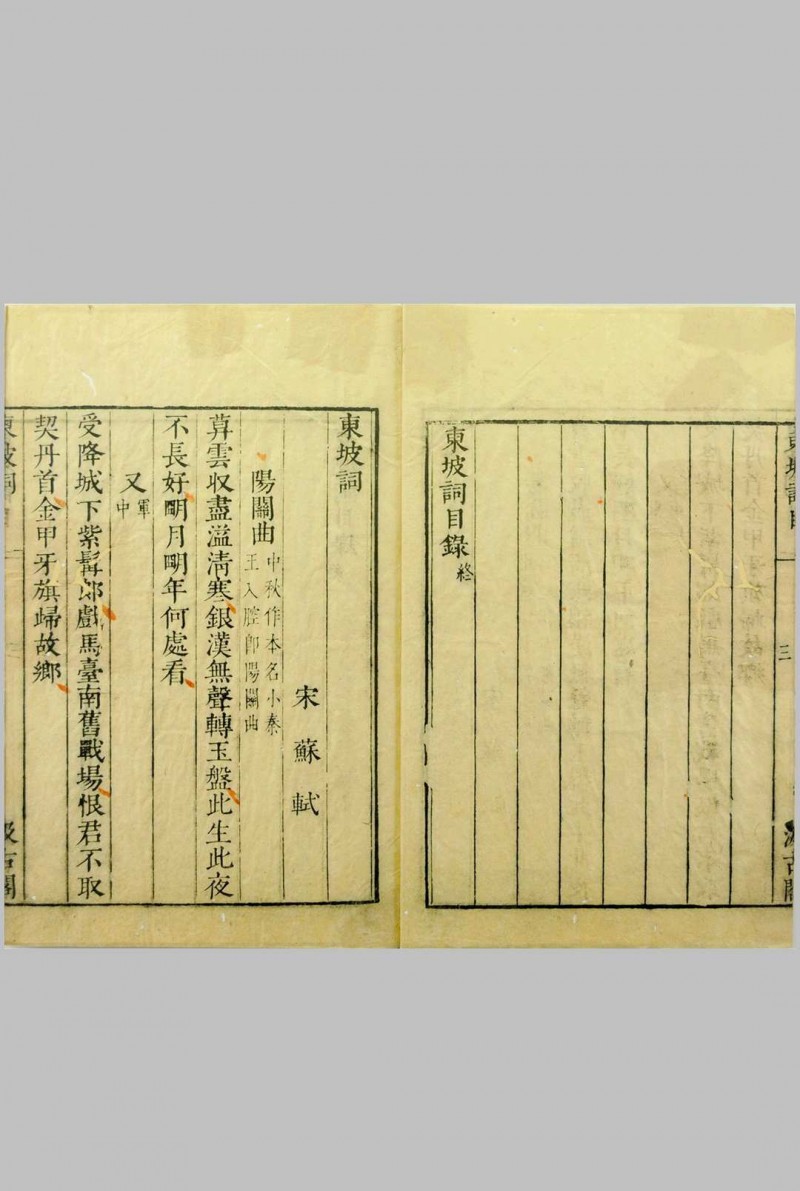 東坡詞目 三 汲古閣
東坡詞目錄終
東坡詞
宋蘇軾
陽關曲 中秋作本名小秦
王入腔卽陽關曲
暮雲収盡溢淸寒銀漢無聲轉玉盤此生此夜
不長好眀月眀年何處看
又 軍中
受降城下紫髯郎戲馬臺南舊戰場恨君不取
契丹首金甲牙旗歸故鄉
東坡詞 一 汲古閣